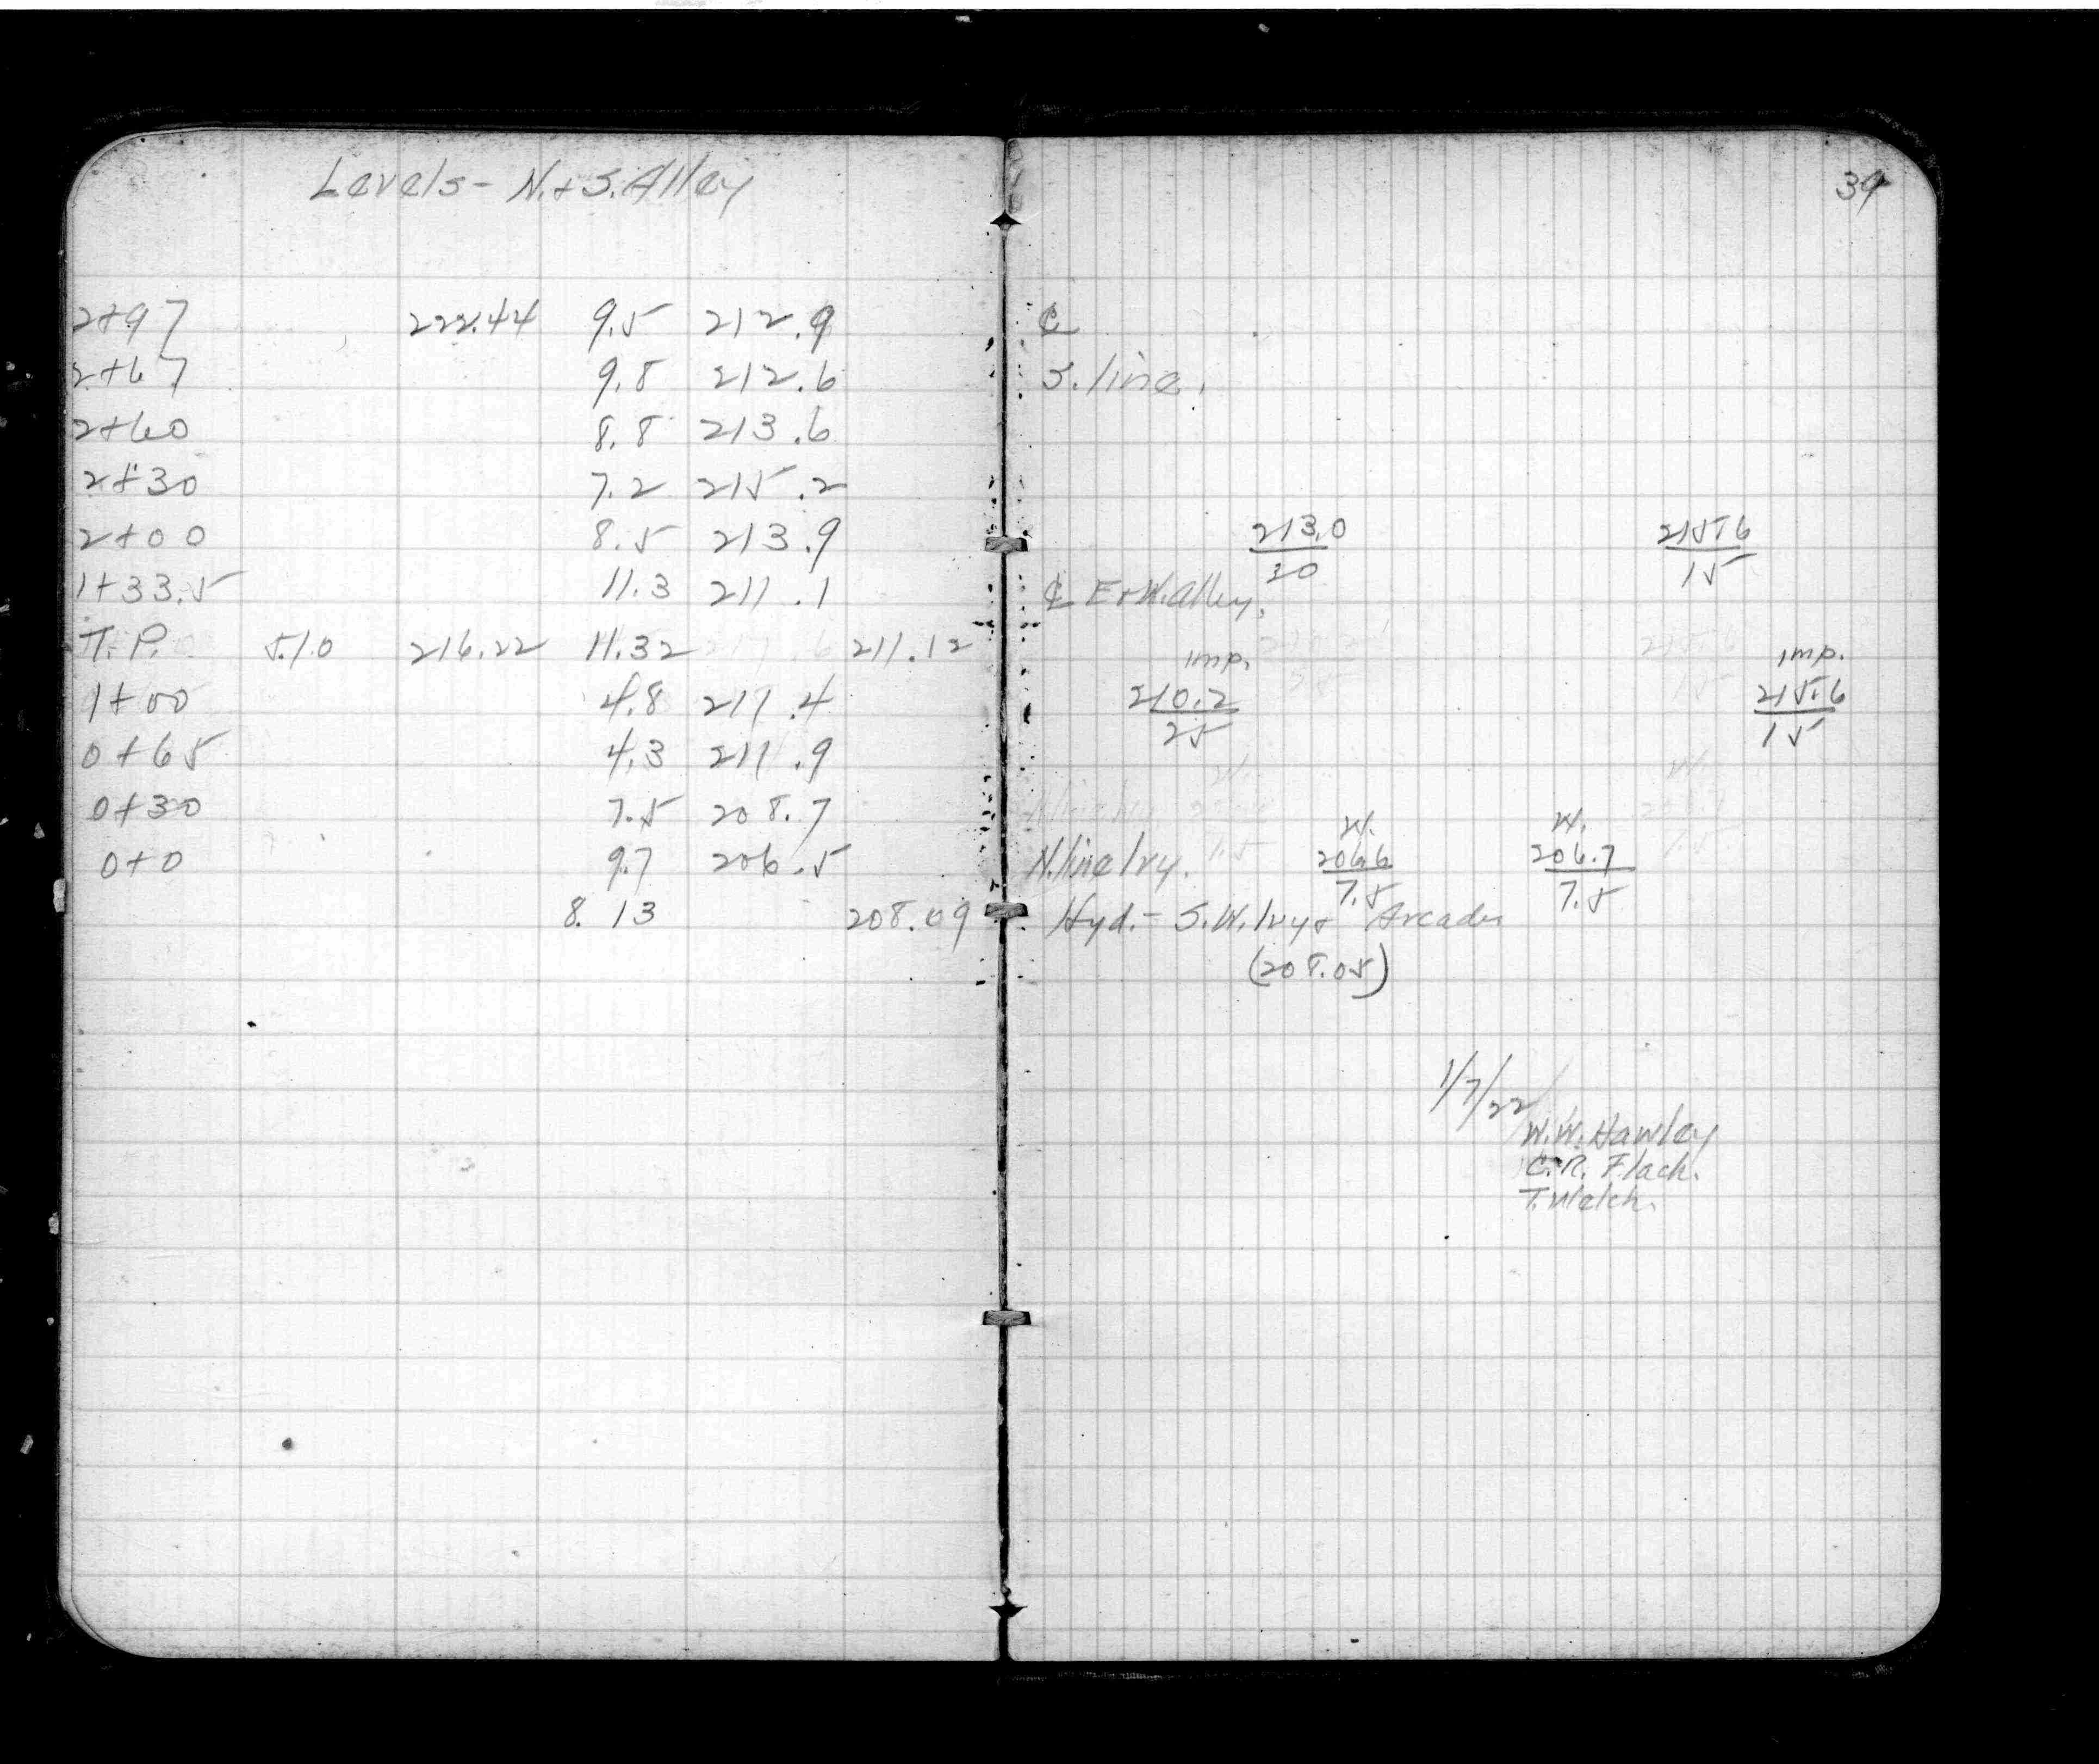 Levels - N. + S. Alley
39
2+97 222.44 9.5 212.9 ℄
2+67 9.8 212.6 S. line.
2+60 8.8 213.6
2+30 7.2 215.2
2+00 8.5 213.9 213.0/30 215.6/15
1+33.5 11.3 211.1 ℄ E+W. alley.
T.P. 5.10 216.22 11.32 211.12
imp. imp.
1+00 4.8 211.4 210.2/25 215.6/15
0+65 4.3 211.9
0+30 7.5 208.7
W. W.
0+0 9.7 206.5 N. line Ivy. 206.6/7.5 206.7/7.5
8.13 208.09 Hyd. - S.W. Ivy + Arcade
(208.05)
1/7/22
W.W. Hawley
C.R. Flach.
T. Welch.